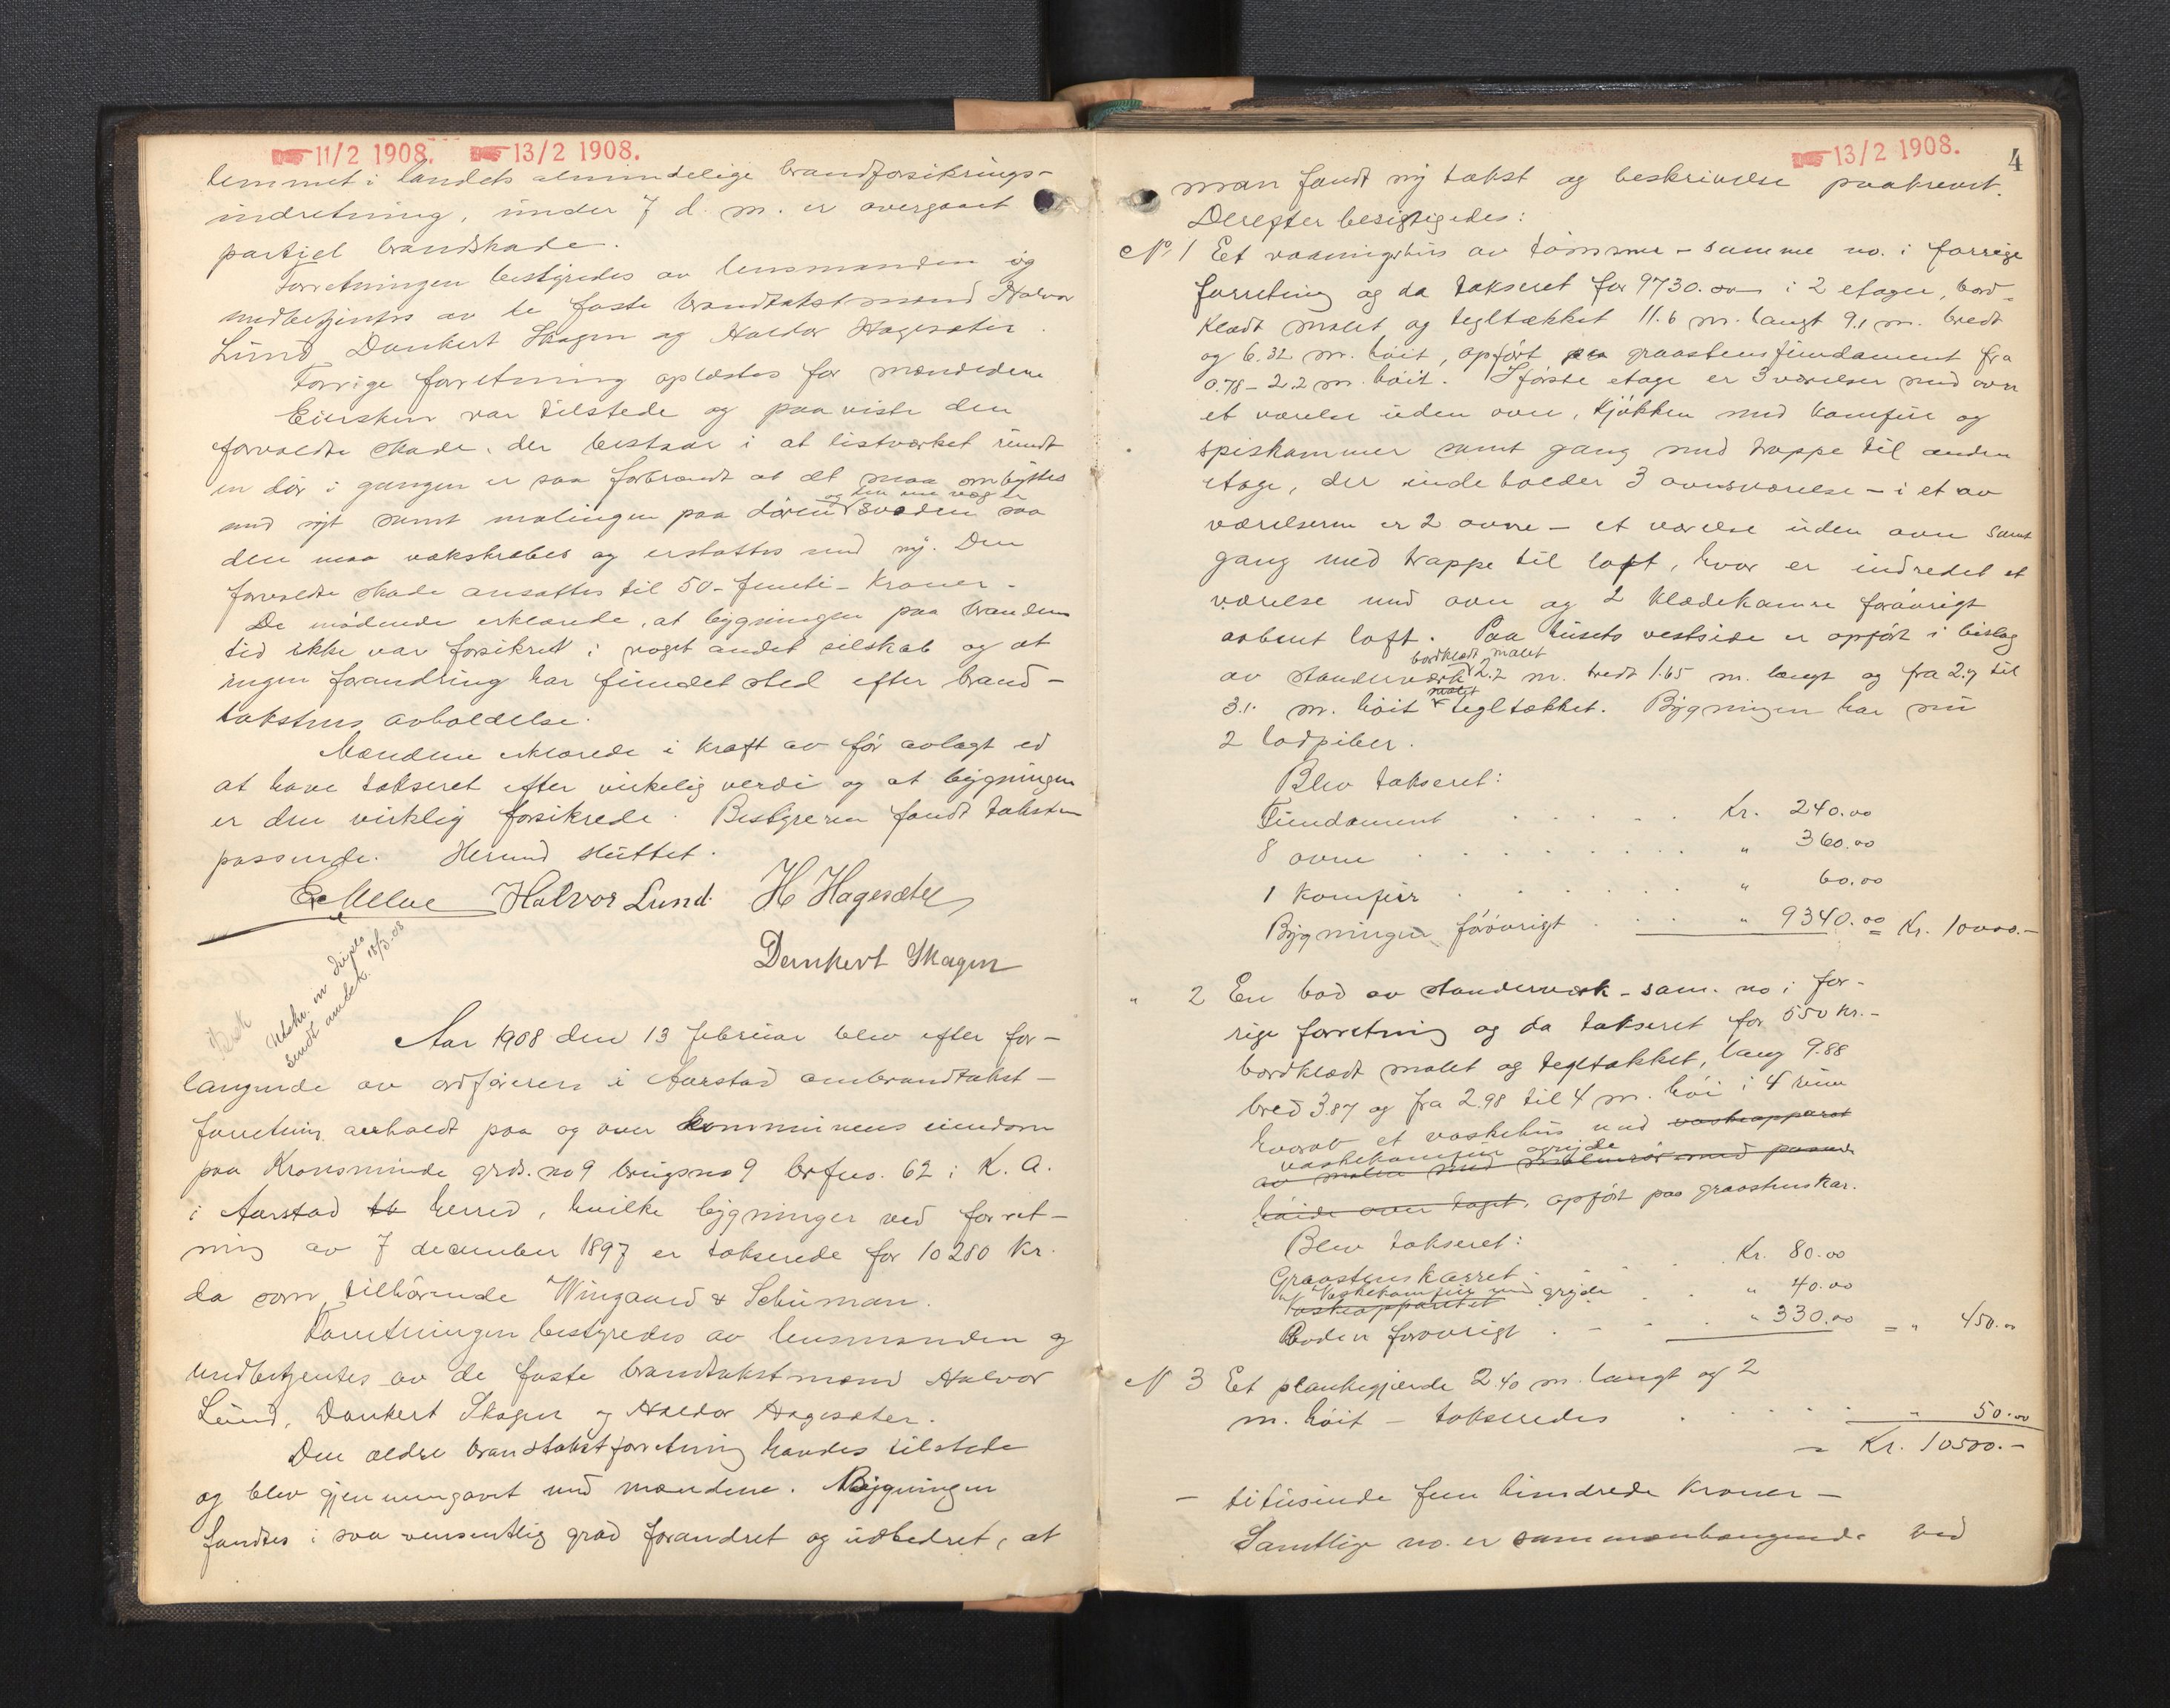 11/2 1908. 13/2 1908.
temmet i landets almindelige brandforsikrings-
indretning, under 7 d. m. er overgaaet
partiel brandskade.
Forretningen bestyredes av lensmanden og
medbetjentes av de faste brandtakstmænd Halvor
Lund, Dankert Skagen og Haldor Hagesæter.
Forrige forretning oplæstes for mændene
Eiersken var tilstede og paaviste den
forvoldte skade, der bestaar i at listverket rundt
en dör i gangen er saa forbrændt at det maa ombyttes
og den ene væg er
med nyt samt malingen paa dören svedem saa
den maa vækskrabes og erstattes med ny. Den
forvoldte skade ansattes til 50 - femti - kroner.
De mödende erklærede, at bygningen paa brandens
tid ikke var forsikret i noget andet selskab og at
ingen forandring har fundet sted efter brand-
takstens avholdelse.
Mændene erklærede i kraft av för avlagt ed
at have takseret efter virkelig verdi og at bygningen
er den virklig forsikrede. Bestyreren fandt taksten
passende. Hermed sluttet.
Halvor Lund. H Hagesæter
Dankert Skagen
Utskr. in duplo
sendt amtet. 18/3.08
Aar 1908 den 13 februar blev efter for-
langende av ordföreren i Aarstad ombrandtakst-
forretning avholdt paa og over kommunens eiendom
paa Kronsminde grds. no 9 brugsno 9 brfno. 62 i K. A.
i Aarstad herred, hvilke bygninger ved forret-
ning av 7 december 1897 er takserede for 10280 Kr.
da som tilhörende Wingaard & Schuman.
Forretningen bestyredes av lensmanden og
medbetjentes av de faste brandtakstmænd Halvor
Lund, Dankert Skagen og Haldor Hagesæter.
Den ældre brandtakstforretning havdes tilstede
og blev gjennemgaaet med mændene. Bygningen
fandtes i saa væsentlig grad forandret og udbedret, at
13/2 1908. 4
man fandt ny takst og beskrivelse paakrævet.
Derefter besigtigedes:
No. 1 Et vaaningshus av tömmer - samme no. i forrige
forretning og da takseret for 9730.00 i 2 etager, bord-
klædt malet og tegltækket 11.6 m. langt 9.1 m. bredt
og 6.32 m. höit, opfört paa graastensfundament fra
0.78 - 2.2 m. höit. I förste etage er 3 værelser med ovn
et værelse uden ovn, kjökken med komfur og
spiskammer samt gang med trappe til anden
etage, der indeholder 3 ovnsværelse - i et av
værelserne er 2 ovne - et værelse uden ovn samt
gang med trappe til loft, hvor er indredet et
værelse med ovn og 2 klædekamre forövrigt
aabent loft. Paa husets vestside er opfört i bislag
bordklædt, malet
av standerværk 2.2 m. bredt 1.65 m. langt og fra 2.7 til
malet
3.1. m. höit & tegltækket. Bygningen har nu
2 ladpiber.
Blev takseret:
Fundament . . . . . Kr. 240.00
8 ovne . . . . . . . " 360.00
1 komfur . . . . . . " 60.00
Bygningen forövrigt . . . " 9340.00 = Kr. 10000.-
" 2 En bod av standerværk - sam. no i for-
rige forretning og da takseret for 550 kr. -
bordklædt malet og tegltækket, lang 9.88
bred 3.87 og fra 2.98 til 4 m. höi i 4 rum
hvorav et vaskehus med vaskeapparat
vaskekomfur gryde
höide over taget, opfört paa graastenskar.
Blev takseret:
Graastenskarret . . . Kr. 80.00
Vaskekomfur med gryde . . " 40.00
Vaskeapparatet
Boden forövrigt . - . . " 330.00 = " 450.00
N 3 Et plankegjærde 2.40 m. langt og 2
m. höit - takseredes . . . . . " 50.00
= Kr. 10500.-
- titusinde fem hundrede kroner -
Samtlige no. er sammenhængende ved